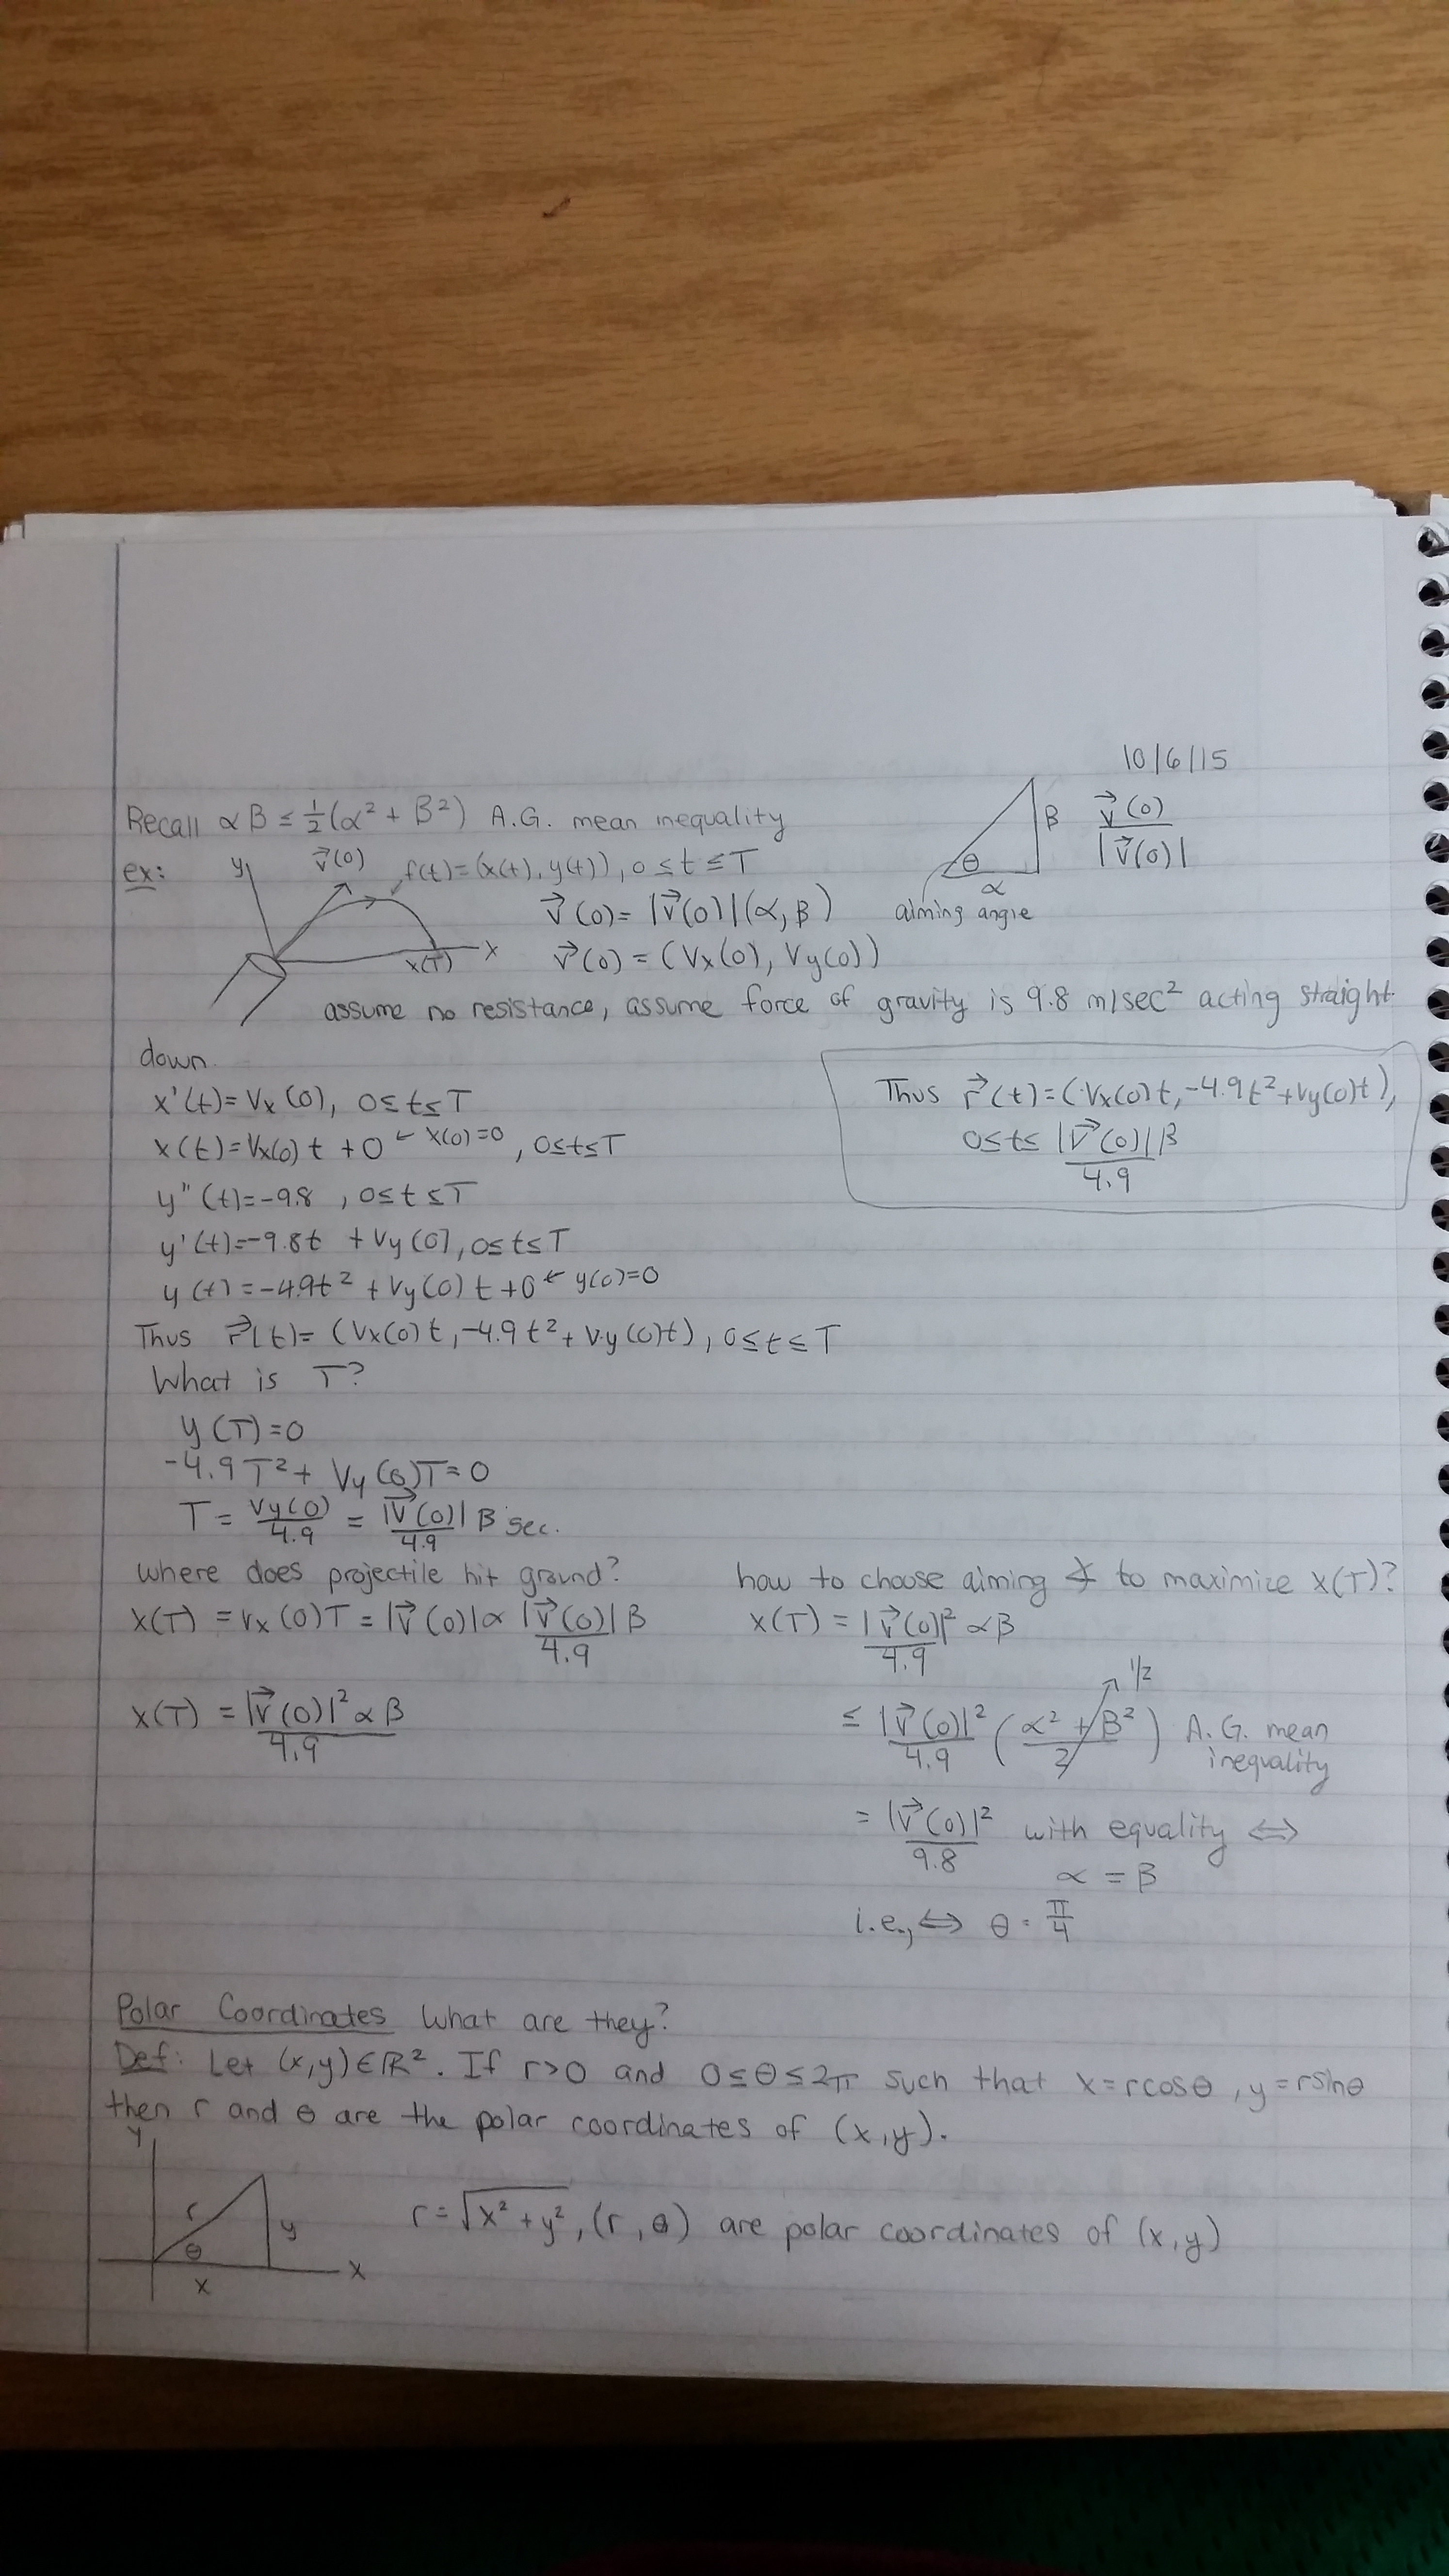 10/6/15
Recall αβ ≤ ½(α² + β²) A.G. mean inequality
β v⃗(0)/|v⃗(0)|
θ
α
aiming angle
ex: y v⃗(0) r(t)=(x(t), y(t)), 0≤t≤T
v⃗(0)= |v⃗(0)|(α, β)
x(T) x v⃗(0) = (Vx(0), Vy(0))
assume no resistance, assume force of gravity is 9.8 m/sec² acting straight
down.
x'(t)= Vx(0), 0≤t≤T
x(t)=Vx(0) t +0 ← x(0)=0, 0≤t≤T
y"(t)=-9.8, 0≤t≤T
y'(t)=-9.8t + Vy(0), 0≤t≤T
y(t)=-4.9t² + Vy(0) t +0 ← y(0)=0
Thus r⃗(t)= (Vx(0)t, -4.9t² + Vy(0)t), 0≤t≤T
Thus r⃗(t)=(Vx(0)t, -4.9t²+Vy(0)t),
0≤t≤ |v⃗(0)|β/4.9
What is T?
y(T)=0
-4.9T²+ Vy(0)T=0
T= Vy(0)/4.9 = |v⃗(0)|/4.9 β sec.
where does projectile hit ground?
x(T) = Vx(0)T = |v⃗(0)|α |v⃗(0)|β/4.9
x(T) = |v⃗(0)|²αβ/4.9
how to choose aiming ∡ to maximize x(T)?
x(T) = |v⃗(0)|²/4.9 αβ
≤ |v⃗(0)|²/4.9 ((α² + β²)/2) 1/2 A.G. mean
inequality
= |v⃗(0)|²/9.8 with equality ⟺
α = β
i.e., ⟺ θ = π/4
Polar Coordinates What are they?
Def: Let (x,y)∈ℝ². If r>0 and 0≤θ≤2π such that x=rcosθ, y=rsinθ
then r and θ are the polar coordinates of (x,y).
y
r y
θ x
x
r=√(x²+y²), (r, θ) are polar coordinates of (x,y)